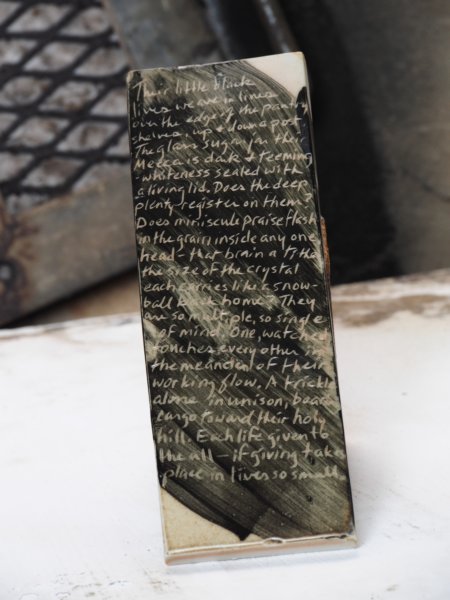 Their little black
lives weave in lines
over the edge of the pantry
shelves, up & down a post.
The glass sugar
Mecca is dark & teeming,
whiteness sealed with
a living lid. Does the deep
plenty register on them?
Does miniscule praise flash
in the grain inside any one
head – that brain a tithe
the size of the crystal
each carries like a snow-
ball back home? They
are so multiple, so single
of mind. One, watched,
touches every other in
the meander of their
working flow. A trickle
alone in unison, bears
cargo toward their holy
hill. Each life given to
the all – if giving takes
place in lives so small.